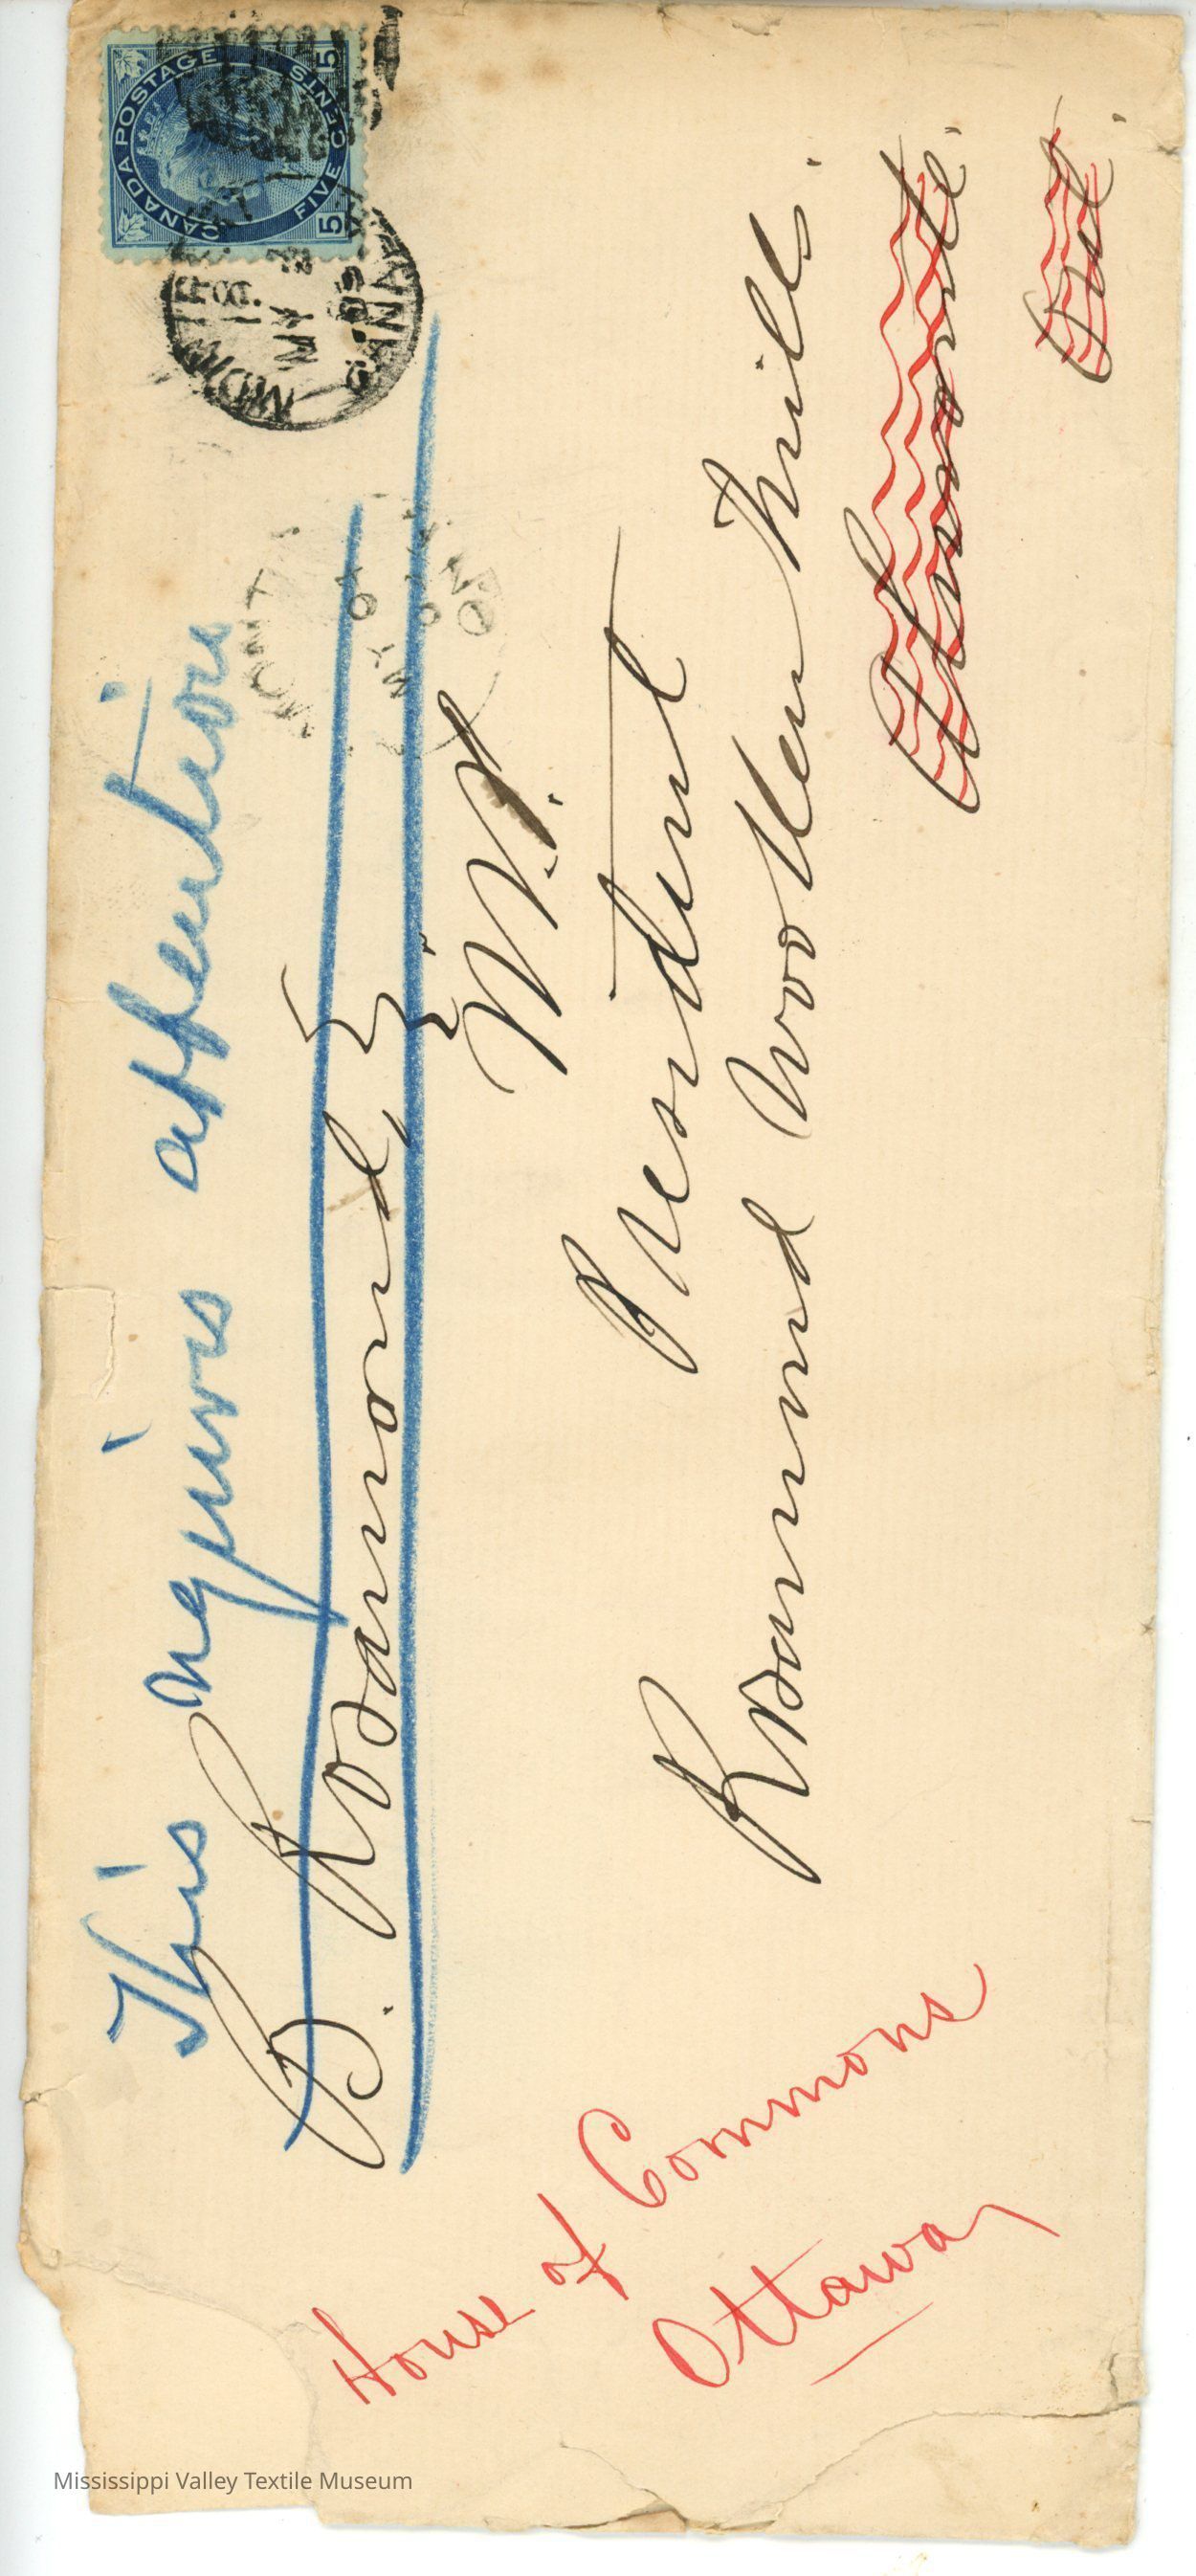 This requires attention
B. Rosamond, Esq.
M.P.
President
Rosamond Woollen Mills.
Almonte.
Ont.
House of Commons
Ottawa
CANADA POSTAGE
FIVE CENTS
5 5
MONTREAL
MY
CANADA
Mississippi Valley Textile Museum